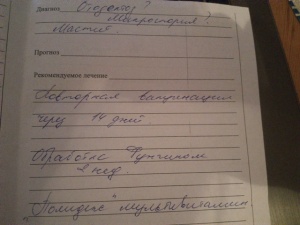 Диагноз Отодектоз?
Микроспория?
Мастит.
Прогноз
Рекомендуемое лечение
Повторная вакцинация
через 14 дней
Обработка Фунгином
2 нед.
"Полидекс" мультивитамин.